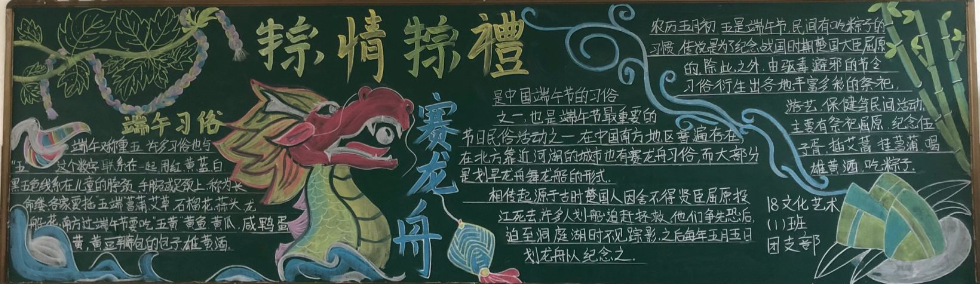 粽情粽禮
端午习俗
端午对称重五,许多习俗也与
"五"这个数字联系在一起.用红黄蓝白
黑五色线系在儿童的脖颈,手腕或足颈上,称为长
命缕.各家要挂五端:菖蒲.艾草.石榴花.蒜头.龙
船花.南方过端午节要吃"五黄":黄鱼.黄瓜.咸鸭蛋
黄.黄豆瓣包的包子.雄黄酒.
赛龙舟
是中国端午节的习俗
之一,也是端午节最重要的
节日民俗活动之一,在中国南方地区普遍存在,
在北方靠近河湖的城市也有赛龙舟习俗,而大部分
是划旱龙舟舞龙船的形式.
相传起源于古时楚国人因舍不得贤臣屈原投
江死去,许多人划船追赶拯救.他们争先恐后,
追至洞庭湖时不见踪影,之后每年五月五日
划龙舟以纪念之.
农历五月初五是端午节,民间有吃粽子的
习惯,传说是为了纪念战国时期楚国大臣屈原
的.除此之外,由驱毒避邪的节令
习俗衍生出各地丰富多彩的祭祀,
游艺,保健等民间活动.
主要有祭祀屈原,纪念伍
子胥,插艾蒿,挂菖蒲,喝
雄黄酒,吃粽子.
18文化艺术
(1)班
团支部